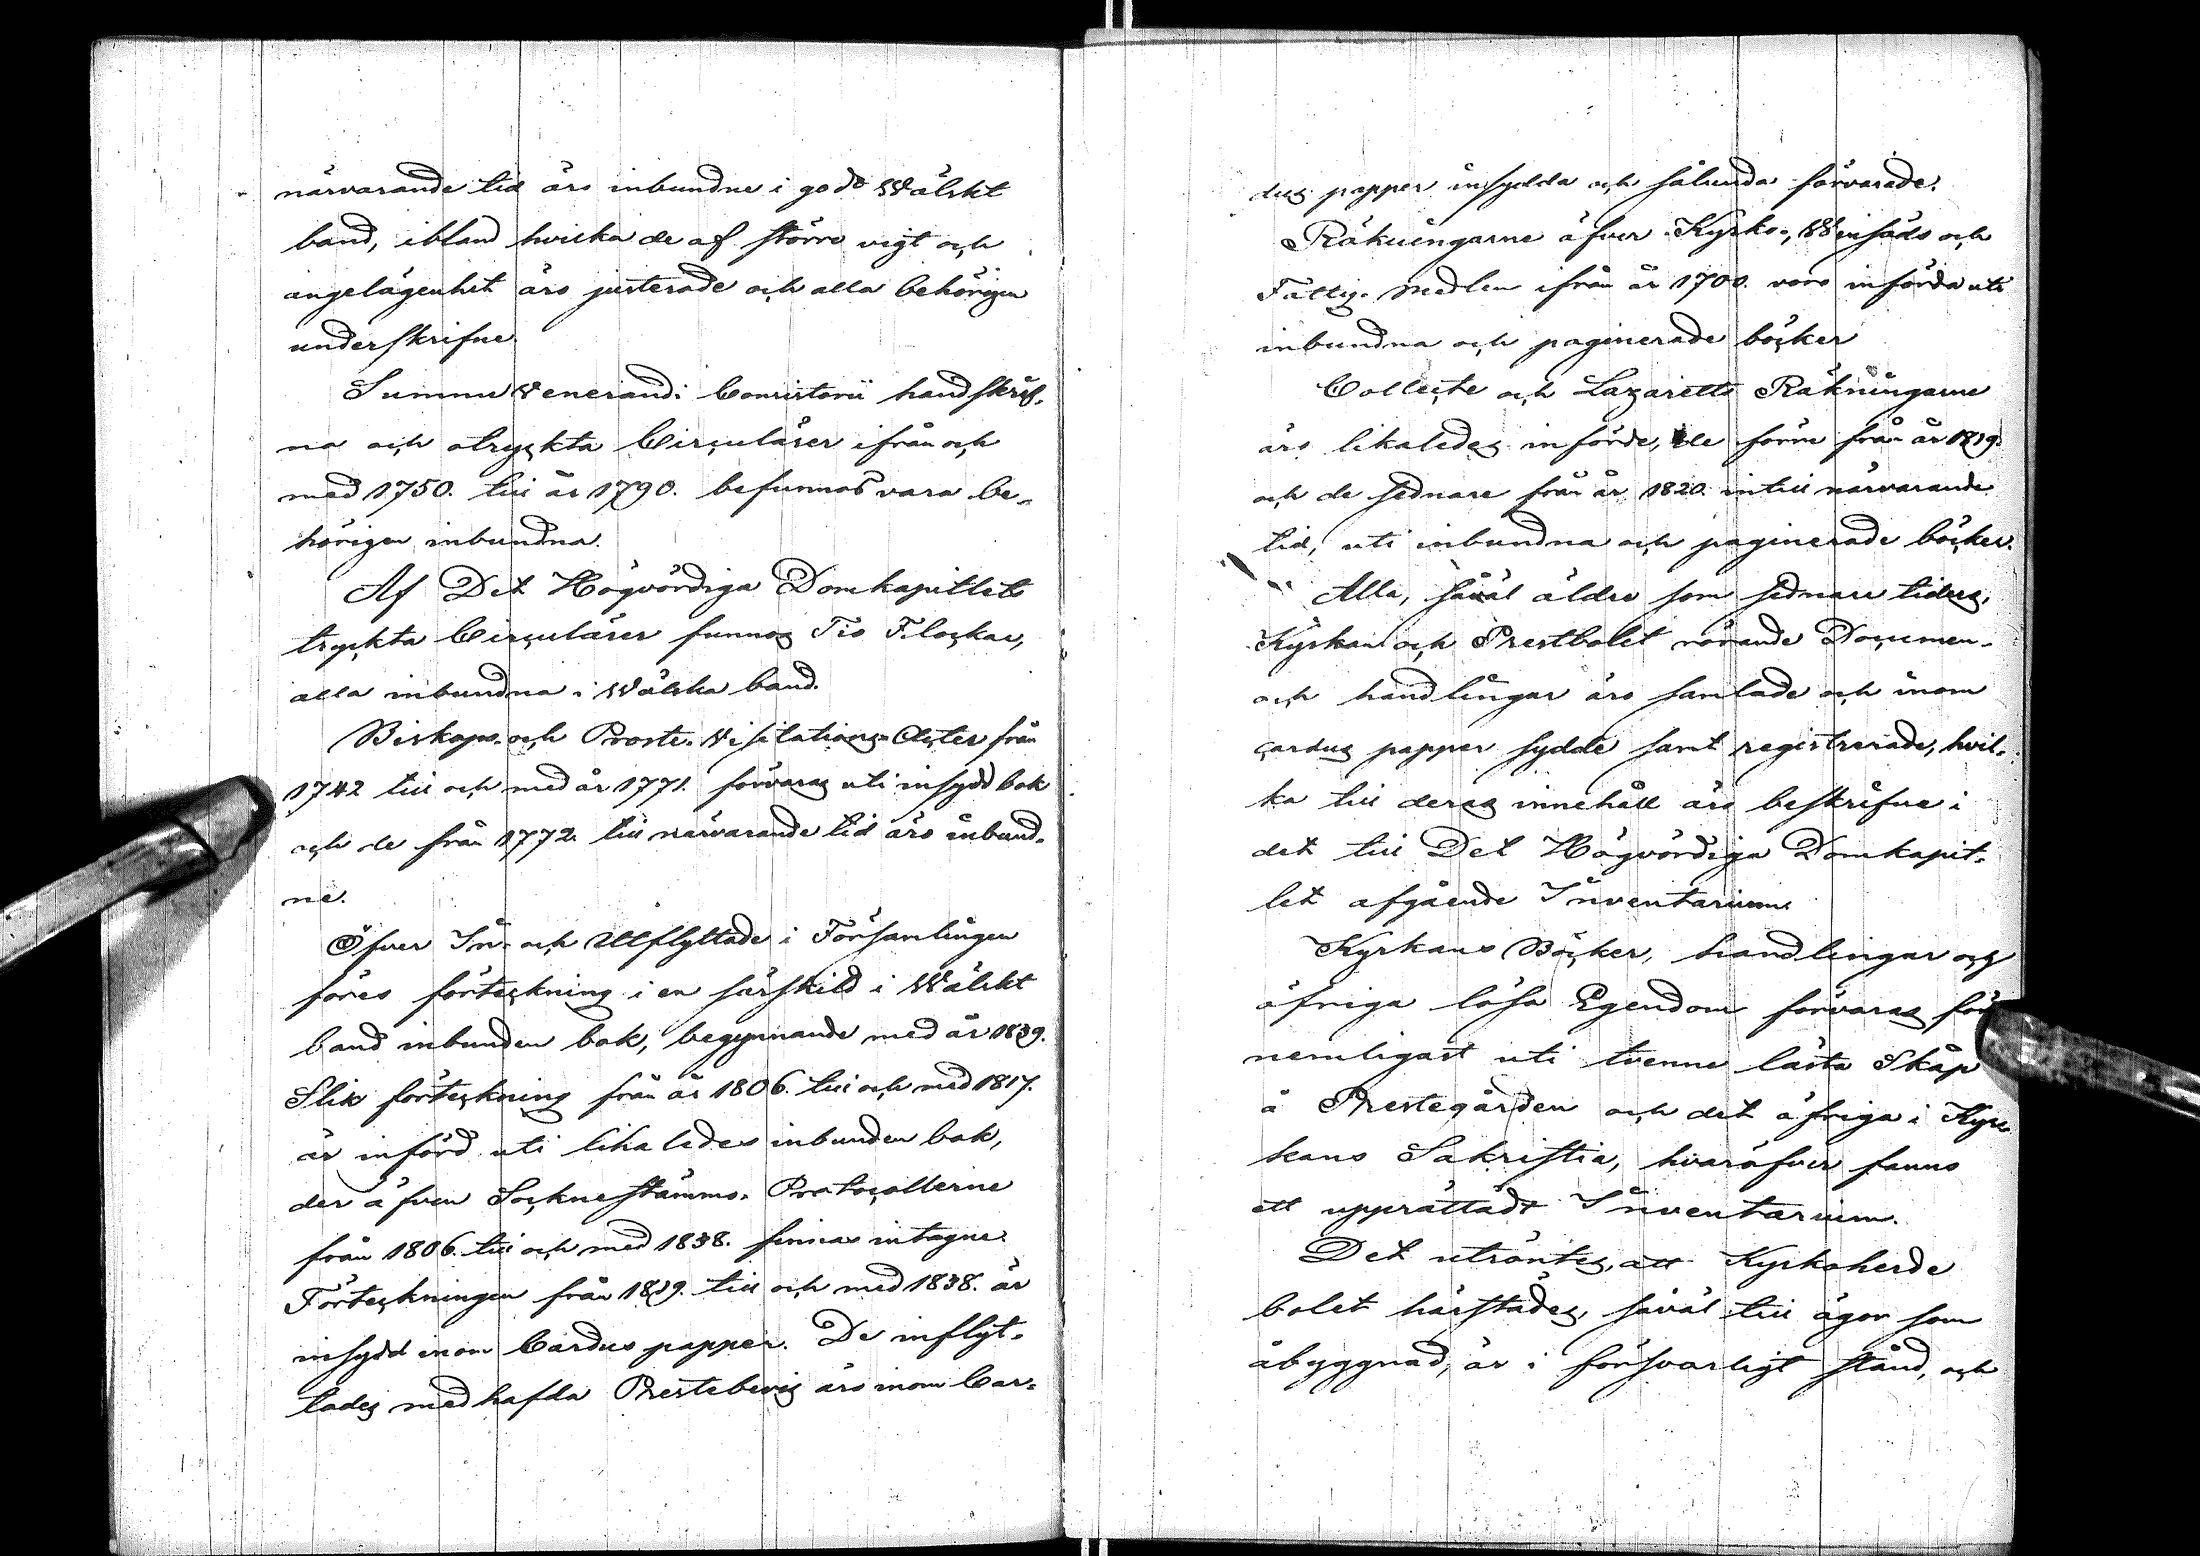 närvarande tid äro inbundne i godt Wälskt
band, ibland hvilka de af större vigt och
angelägenhet äro justerade och alla behörigen
underskrifne.
Summe Venerand: Consistorii handskrif-
na och otryckta Circulärer ifrån och
med 1750. till år 1790. befunnos vara be-
hörigen inbundna.
Af Det Högvördiga Domkapitlets
tryckta Circulärer funnos Tio Flockar,
alla inbundna i Wälska band.
Biskops- och Prosts-Visitations-Acter från
1742 till och med år 1771. förvaras uti insydd bok
och de från 1772. till närvarande tid äro inbund-
ne.
Öfver In- och Utflyttade i Församlingen
föres förteckning i en särskild i Wälskt
band inbunden bok, begynnande med år 1839.
Slik förteckning från år 1806. till och med 1817.
är införd uti likaledes inbunden bok,
der äfven Sockenstämmo-Protocollerne
från 1806. till och med 1838. finnas intagne.
Förteckningen från 1819. till och med 1838. är
insydd inom Cardus papper. De inflyt-
tades medhafda Prestebevis äro inom Car-
dus papper insydda och sålunda förvarade.
Räkningarne öfver Kyrko-, Winsäds och
Fattig-Medlen ifrån år 1700. voro införda uti
inbundna och paginerade böcker
Collecte och Lazaretts Räkningarne
äro likaledes införde, de förra från år 1819.
och de sednare från år 1820. intill närvarande
tid, uti inbundna och paginerade böcker.
Alla, såväl äldre som sednare tiders,
Kyrkan och Prestbolet rörande Documen-
och handlingar äro samlade och inom
cardus papper sydde samt registrerade, hvil-
ka till deras innehåll äro beskrifne i
det till Det Högvördiga Domkapit-
let afgående Inventarium.
Kyrkans Böcker, handlingar och
öfriga lösa Egendom förvaras för
nemligast uti tvenne låsta Skåp
å Prestegården och det öfriga i Kyr-
kans Sakristia, hvaröfver fanns
ett upprättadt Inventarium.
Det utröntes, att Kyrkoherde
bolet härstädes, såväl till ägor som
åbyggnad, är i försvarligt stånd, och